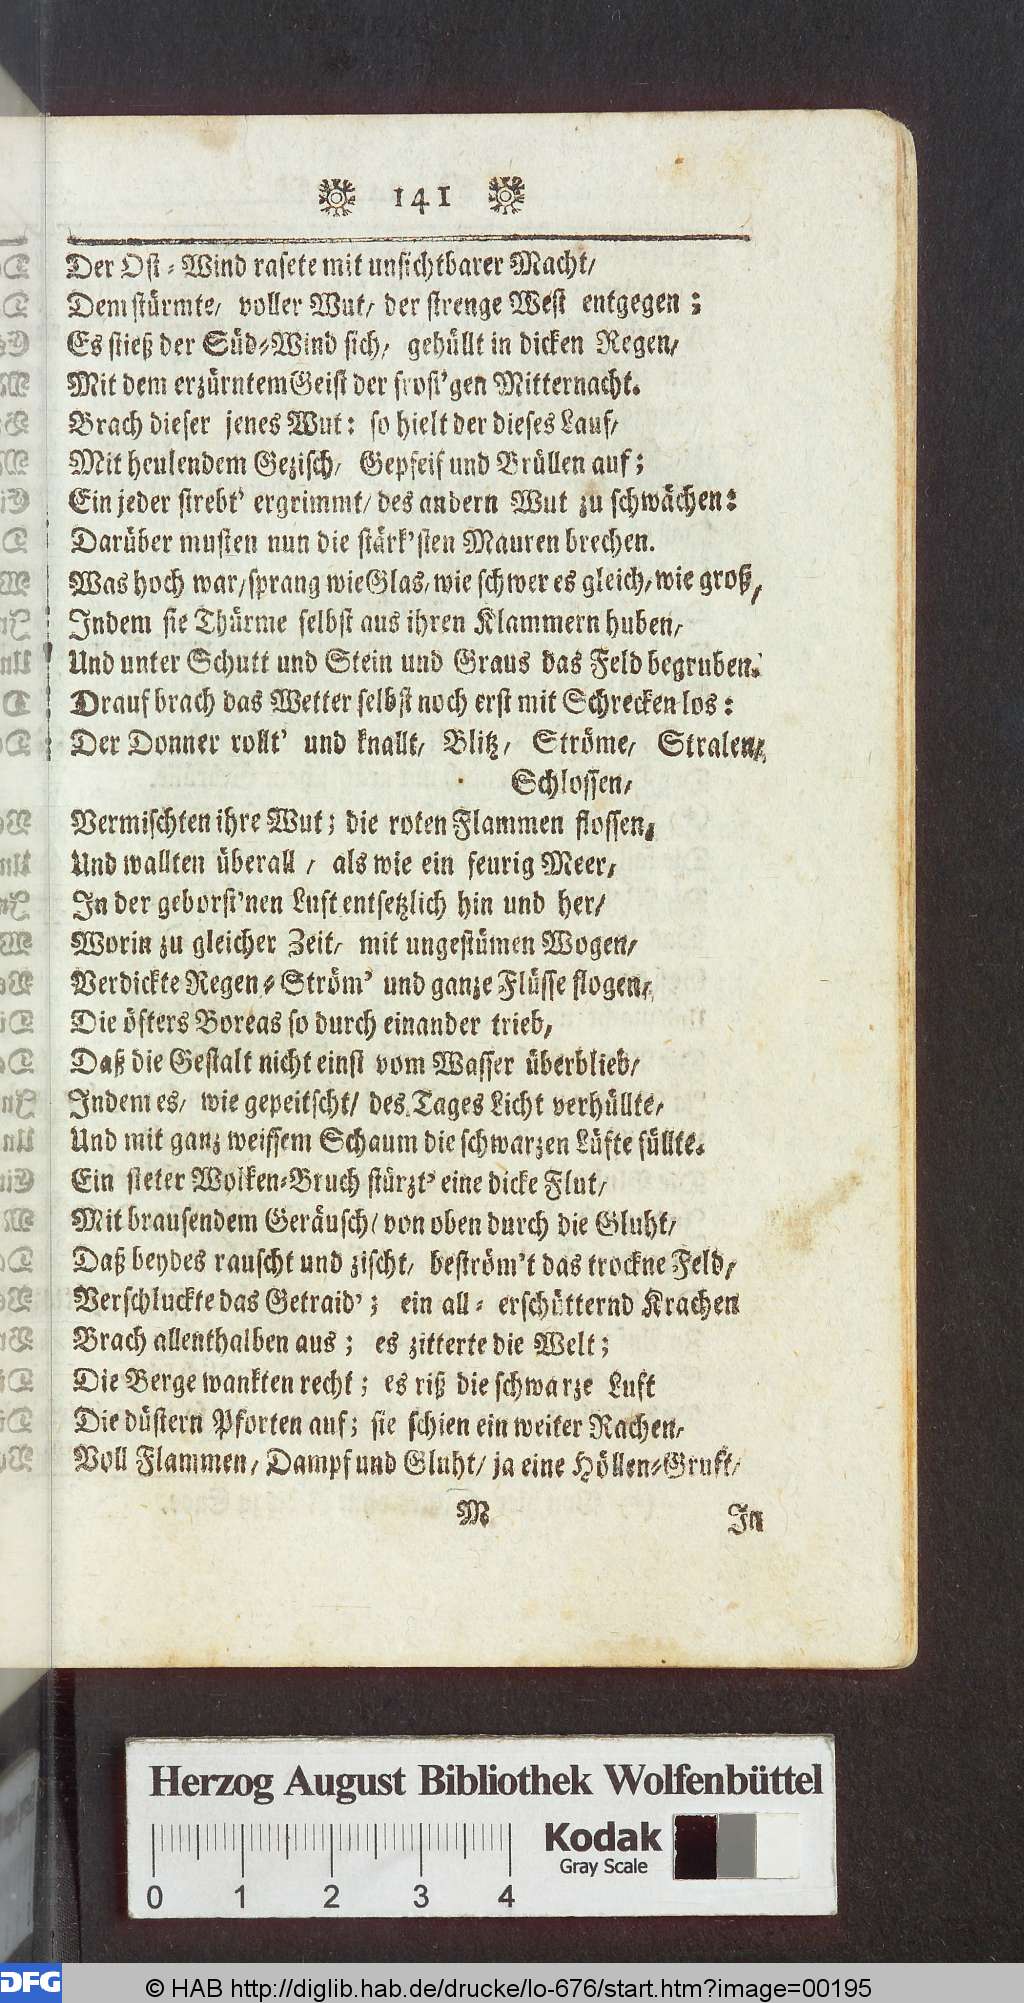 141
Der Ost-Wind rasete mit unsichtbarer Macht/
Dem stürmte/ voller Wut/ der strenge West entgegen;
Es stieß der Süd-Wind sich/ gehüllt in dicken Regen/
Mit dem erzürntem Geist der frost'gen Mitternacht.
Brach dieser jenes Wut: so hielt der dieses Lauf/
Mit heulendem Gezisch/ Gepfeif und Brüllen auf;
Ein jeder strebt' ergrimmt/ des andern Wut zu schwächen:
Darüber musten nun die stärk'sten Mauren brechen.
Was hoch war/ sprang wie Glas/ wie schwer es gleich/ wie groß,
Indem sie Thürme selbst aus ihren Klammern huben/
Und unter Schutt und Stein und Graus das Feld begruben.
Drauf brach das Wetter selbst noch erst mit Schrecken los:
Der Donner rollt' und knallt/ Blitz/ Ströme/ Stralen/
Schlossen/
Vermischten ihre Wut; die roten Flammen flossen,
Und wallten überall/ als wie ein feurig Meer/
In der geborst'nen Luft entsetzlich hin und her/
Worin zu gleicher Zeit/ mit ungestümen Wogen/
Verdickte Regen-Ström' und ganze Flüsse flogen/
Die öfters Boreas so durch einander trieb,
Daß die Gestalt nicht einst vom Wasser überblieb/
Indem es/ wie gepeitscht/ des Tages Licht verhüllte/
Und mit ganz weissem Schaum die schwarzen Lüfte füllte.
Ein steter Wolken-Bruch stürzt' eine dicke Flut/
Mit brausendem Geräusch/ von oben durch die Gluht/
Daß beydes rauscht und zischt/ beström't das trockne Feld,
Verschluckte das Getraid'; ein all-erschütternd Krachen
Brach allenthalben aus; es zitterte die Welt;
Die Berge wankten recht; es riß die schwarze Luft
Die düstern Pforten auf; sie schien ein weiter Rachen/
Voll Flammen/ Dampf und Gluht/ ja eine Höllen-Gruft/
M In
Herzog August Bibliothek Wolfenbüttel
Kodak
Gray Scale
0 1 2 3 4
DFG © HAB http://diglib.hab.de/drucke/lo-676/start.htm?image=00195